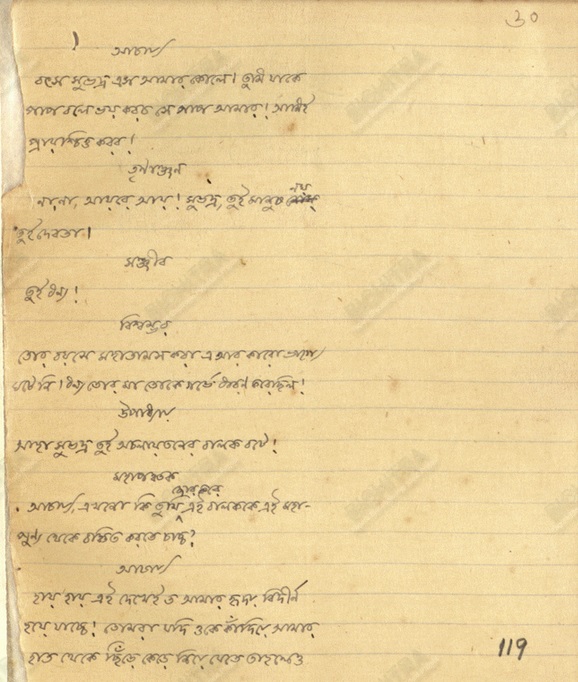 30
আচার্য্য
বৎস সুভদ্র এস আমার কোলে! তুমি যাকে
পাপ বলে ভয় করচ সে পাপ আমার! আমিই
প্রায়শ্চিত্ত করব!
তৃণাঞ্জন
না না, আয়রে আয়! সুভদ্র, তুই মানুষ নয়
তুই দেবতা।
সঞ্জীব
তুই ধন্য!
বিশ্বম্ভর
তোর বয়সে মহাতামস করা এ আর কারো ভাগ্যে
ঘটেনি। ধন্য তোর মা তোকে গর্ভে ধারণ করেছিল!
উপাধ্যায়
আহা সুভদ্র তুই অচলায়তনের বালক বটে!
মহাপঞ্চক
আচার্য্য, এখনো কি তুমি জোর করে এই বালককে এই মহা-
পুণ্য থেকে বঞ্চিত করতে চাচ্চ?
আচার্য্য
হায় হায় এই দেখেই ত আমার হৃদয় বিদীর্ণ
হয়ে যাচ্চে! তোমরা যদি ওকে কাঁদিয়ে আমার
হাত থেকে ছিঁড়ে কেড়ে নিয়ে যেতে তাহলেও
119